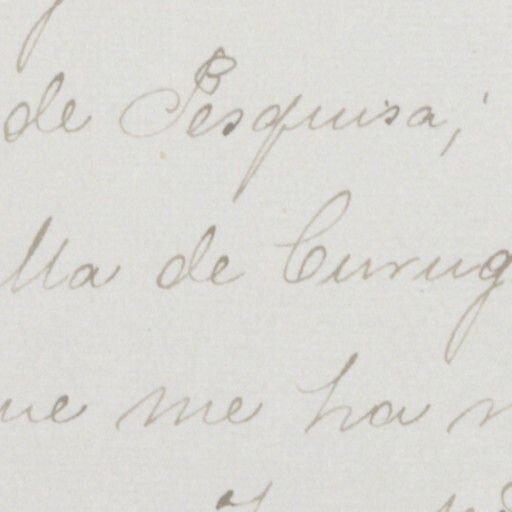 de Pesquisa;
lla de Curug
ue me ha